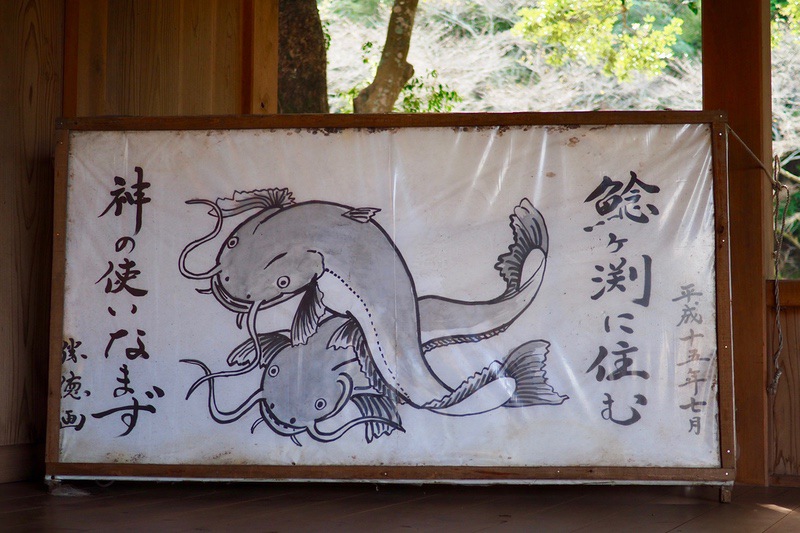 平成十五年七月
鯰ヶ渕に住む
神の使いなまず
画